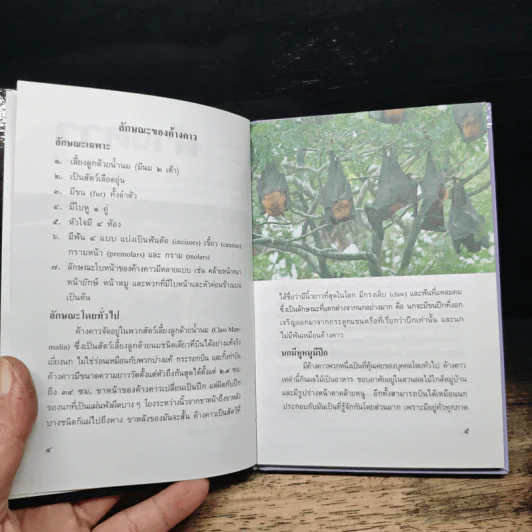 ลักษณะของค้างคาว
ลักษณะเฉพาะ
๑. เลี้ยงลูกด้วยน้ำนม (มีนม ๒ เต้า)
๒. เป็นสัตว์เลือดอุ่น
๓. มีขน (fur) ทั้งลำตัว
๔. มีใบหู ๑ คู่
๕. หัวใจมี ๔ ห้อง
๖. มีฟัน ๔ แบบ แบ่งเป็นฟันตัด (incisors) เขี้ยว (canines)
กรามหน้า (premolars) และ กราม (molars)
๗. ลักษณะใบหน้าของค้างคาวมีหลายแบบ เช่น คล้ายหน้าหมา
หน้ายักษ์ หน้าหมู และพวกที่มีใบหน้าและหัวค่อนข้างแบน
เป็นต้น
ลักษณะโดยทั่วไป
ค้างคาวจัดอยู่ในพวกสัตว์เลี้ยงลูกด้วยน้ำนม (Class Mam-
malia) ซึ่งเป็นสัตว์เลี้ยงลูกด้วยนมชนิดเดียวที่บินได้อย่างแท้จริง
เยี่ยงนก ไม่ใช่ร่อนเหมือนกับพวกบ่างแก้ กระรอกบิน และกิ้งก่าบิน
ค้างคาวมีขนาดความยาววัดตั้งแต่หัวถึงก้นสุดได้ตั้งแต่ ๒.๕ ซม.
ถึง ๓๕ ซม. ขาหน้าของค้างคาวเปลี่ยนเป็นปีก แต่ผิดกับปีก
ของนกที่เป็นแผ่นพังผืดบาง ๆ โยงระหว่างนิ้วจากขาหน้าถึงขาหลัง
บางชนิดก็แผ่ไปถึงหาง ขาหลังของมันจะสั้น ค้างคาวเป็นสัตว์ที่
๔
ได้ชื่อว่ามีนิ้วยาวที่สุดในโลก มีกรงเล็บ (claw) และฟันที่แหลมคม
ซึ่งเป็นลักษณะที่แตกต่างจากนกอย่างมาก คือ นกจะมีขนปีกที่งอก
เจริญออกมาจากกระดูกแขนหรือที่เรียกว่าปีกเท่านั้น และนก
ไม่มีฟันเหมือนค้างคาว
นกมีหูหนูมีปีก
มีค้างคาวพวกหนึ่งเป็นที่คุ้นเคยของบุคคลโดยทั่วไป ค้างคาว
เหล่านี้กินผลไม้เป็นอาหาร ชอบอาศัยอยู่ในสวนผลไม้ใกล้หมู่บ้าน
และมีรูปร่างหน้าตาคล้ายหนู อีกทั้งสามารถบินได้เหมือนนก
ประกอบกับมันเป็นที่รู้จักกันโดยส่วนมาก เพราะมีอยู่ทั่วทุกภาค
๕